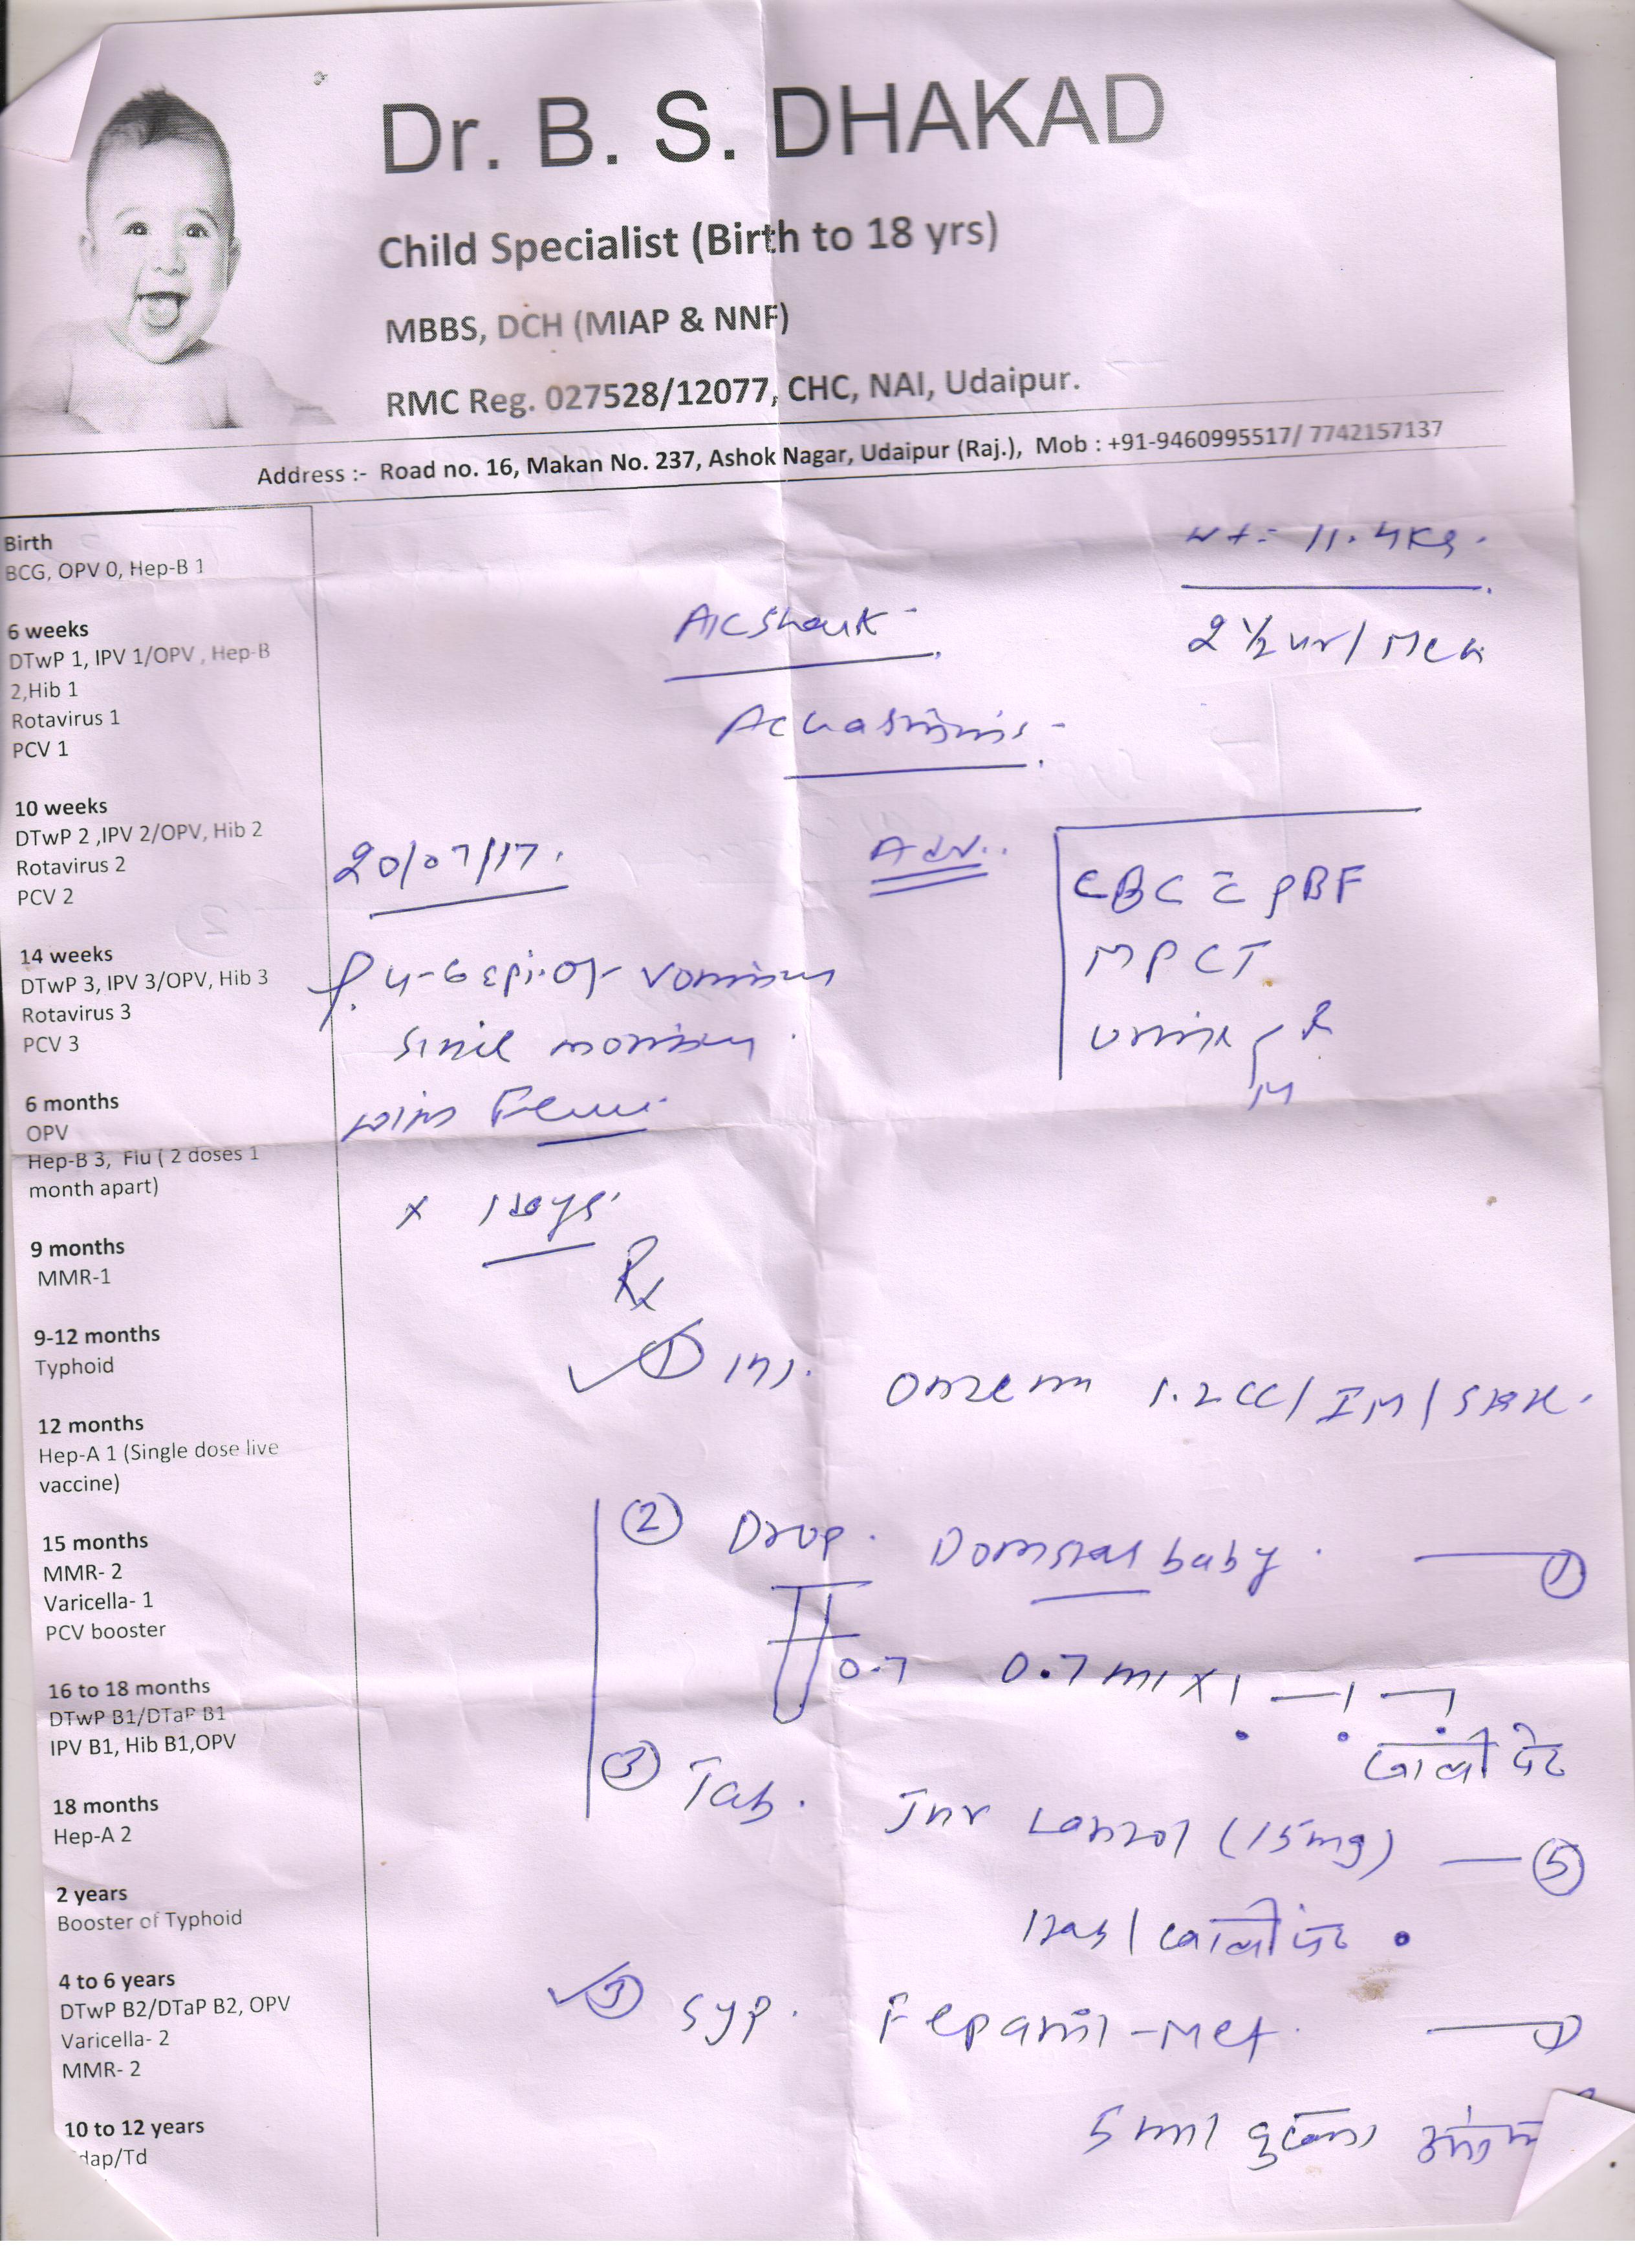 Dr. B. S. DHAKAD
Child Specialist (Birth to 18 yrs)
MBBS, DCH (MIAP & NNF)
RMC Reg. 027528/12077, CHC, NAI, Udaipur.
Address :- Road no. 16, Makan No. 237, Ashok Nagar, Udaipur (Raj.), Mob : +91-9460995517/ 7742157137
Birth
BCG, OPV 0, Hep-B 1
6 weeks
DTwP 1, IPV 1/OPV , Hep-B
2,Hib 1
Rotavirus 1
PCV 1
10 weeks
DTwP 2 ,IPV 2/OPV, Hib 2
Rotavirus 2
PCV 2
14 weeks
DTwP 3, IPV 3/OPV, Hib 3
Rotavirus 3
PCV 3
6 months
OPV
Hep-B 3, Flu ( 2 doses 1
month apart)
9 months
MMR-1
9-12 months
Typhoid
12 months
Hep-A 1 (Single dose live
vaccine)
15 months
MMR- 2
Varicella- 1
PCV booster
16 to 18 months
DTwP B1/DTaP B1
IPV B1, Hib B1,OPV
18 months
Hep-A 2
2 years
Booster of Typhoid
4 to 6 years
DTwP B2/DTaP B2, OPV
Varicella- 2
MMR- 2
10 to 12 years
dap/Td
wt= 11.4Kg.
2 ½
20/07/17.
Adv..
CBC c̄ PBF
MPCT
urine R
M
4-6 epi. of vomiting
since morning
with Fever
x 1 days.
Rx
① inj. 1.2CC/ IM /
② Drop. Domstal baby. — ①
0.7 0.7 ml x 1 — 1 — 1
खाली पेट
③ Tab. Jnr Lanzol (15mg) — ⑤
1 tab / खाली पेट
③ Syp. Fepanil-Mef. — ①
5 ml